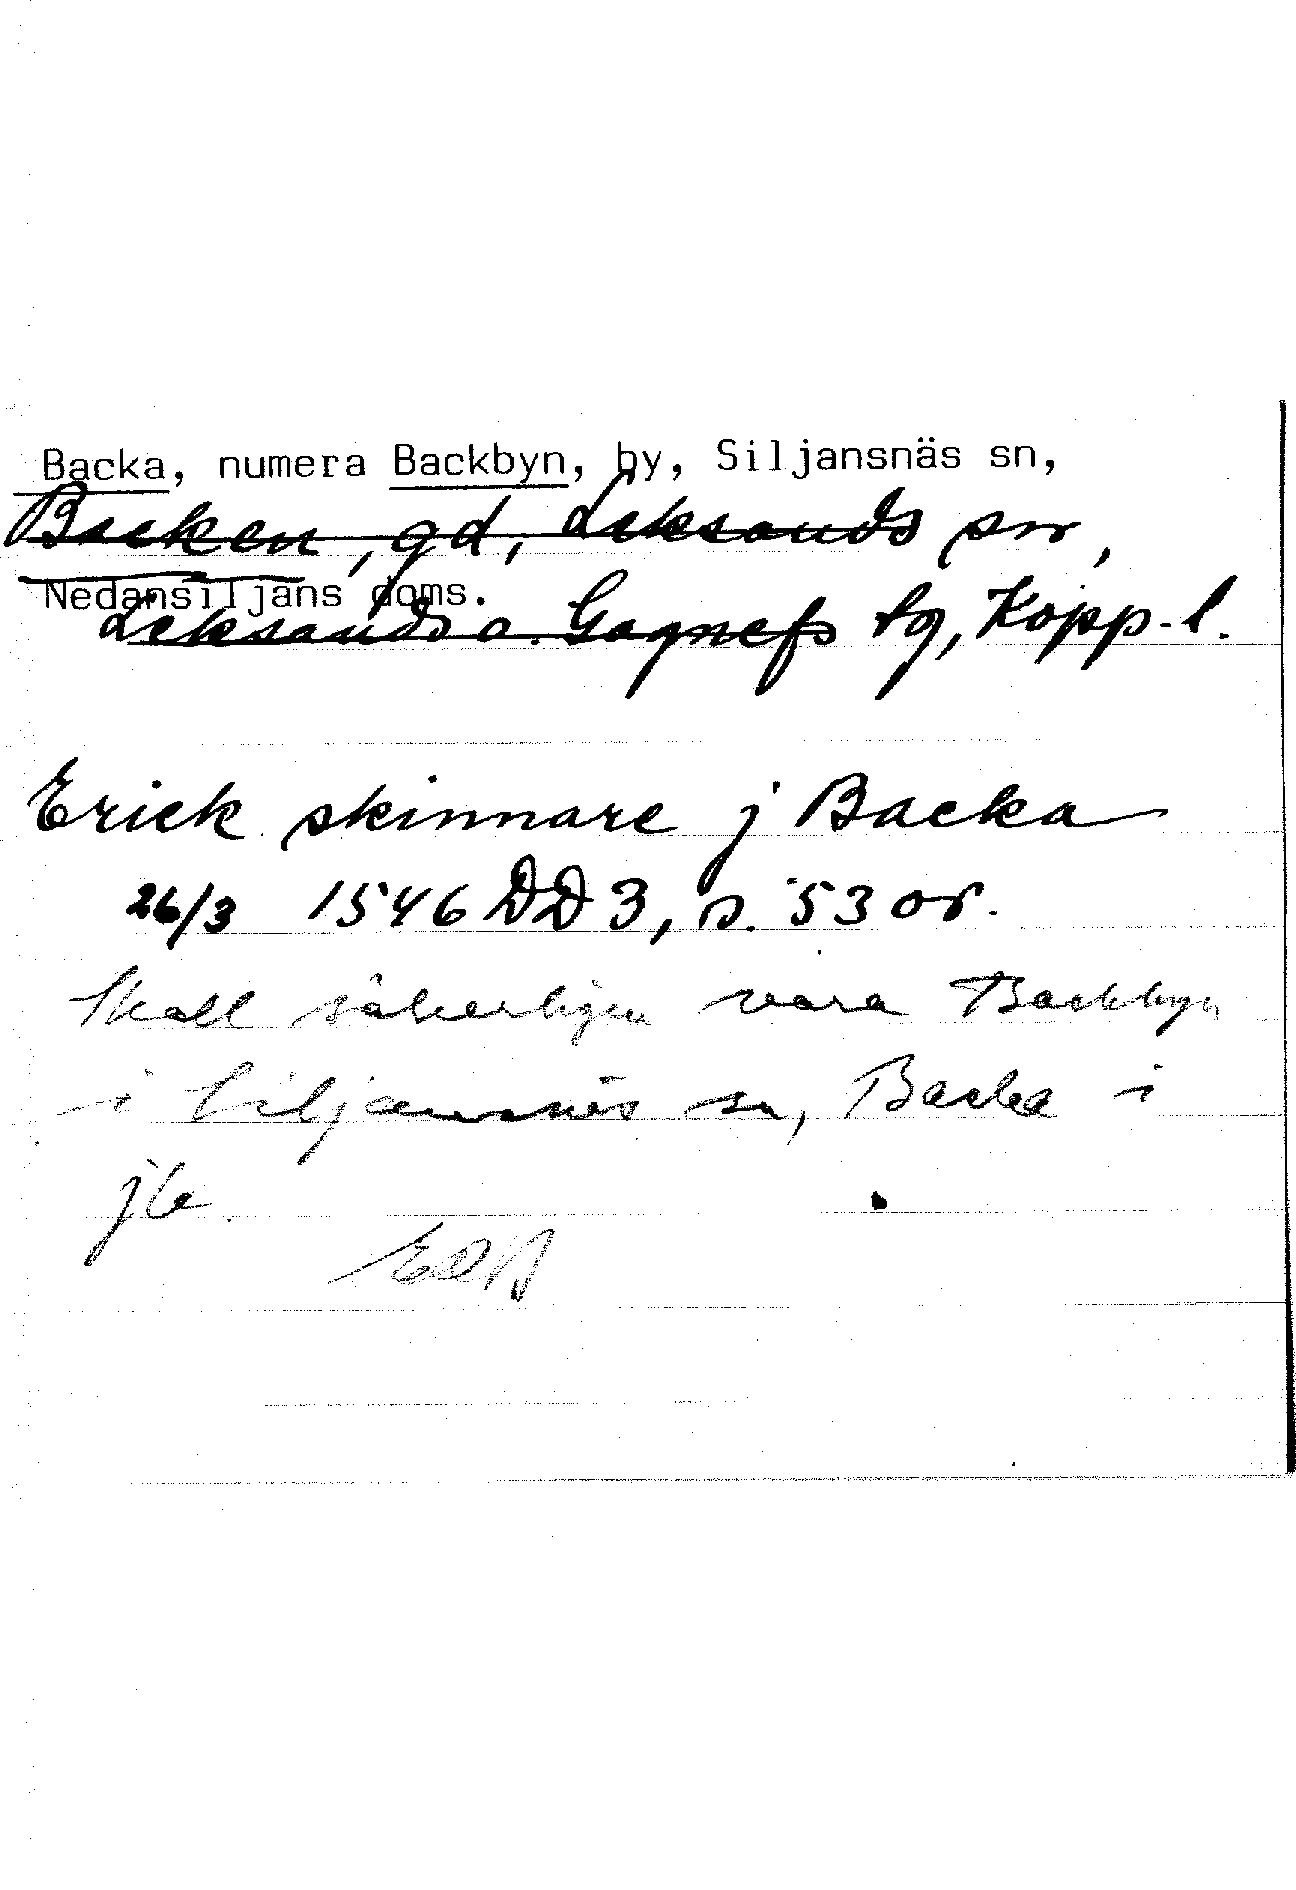 Backa, numera Backbyn, by, Siljansnäs sn,
Backen, gd, Leksands sn,
Nedansiljans doms.
Leksands o. Gagnefs tg, Kopp-l.
Erick skinnare j Backa
26/3 1546 DD 3, s. 53 or.
Skall säkerligen vara Backbyn
i Siljansnäs sn, Backa i
jb